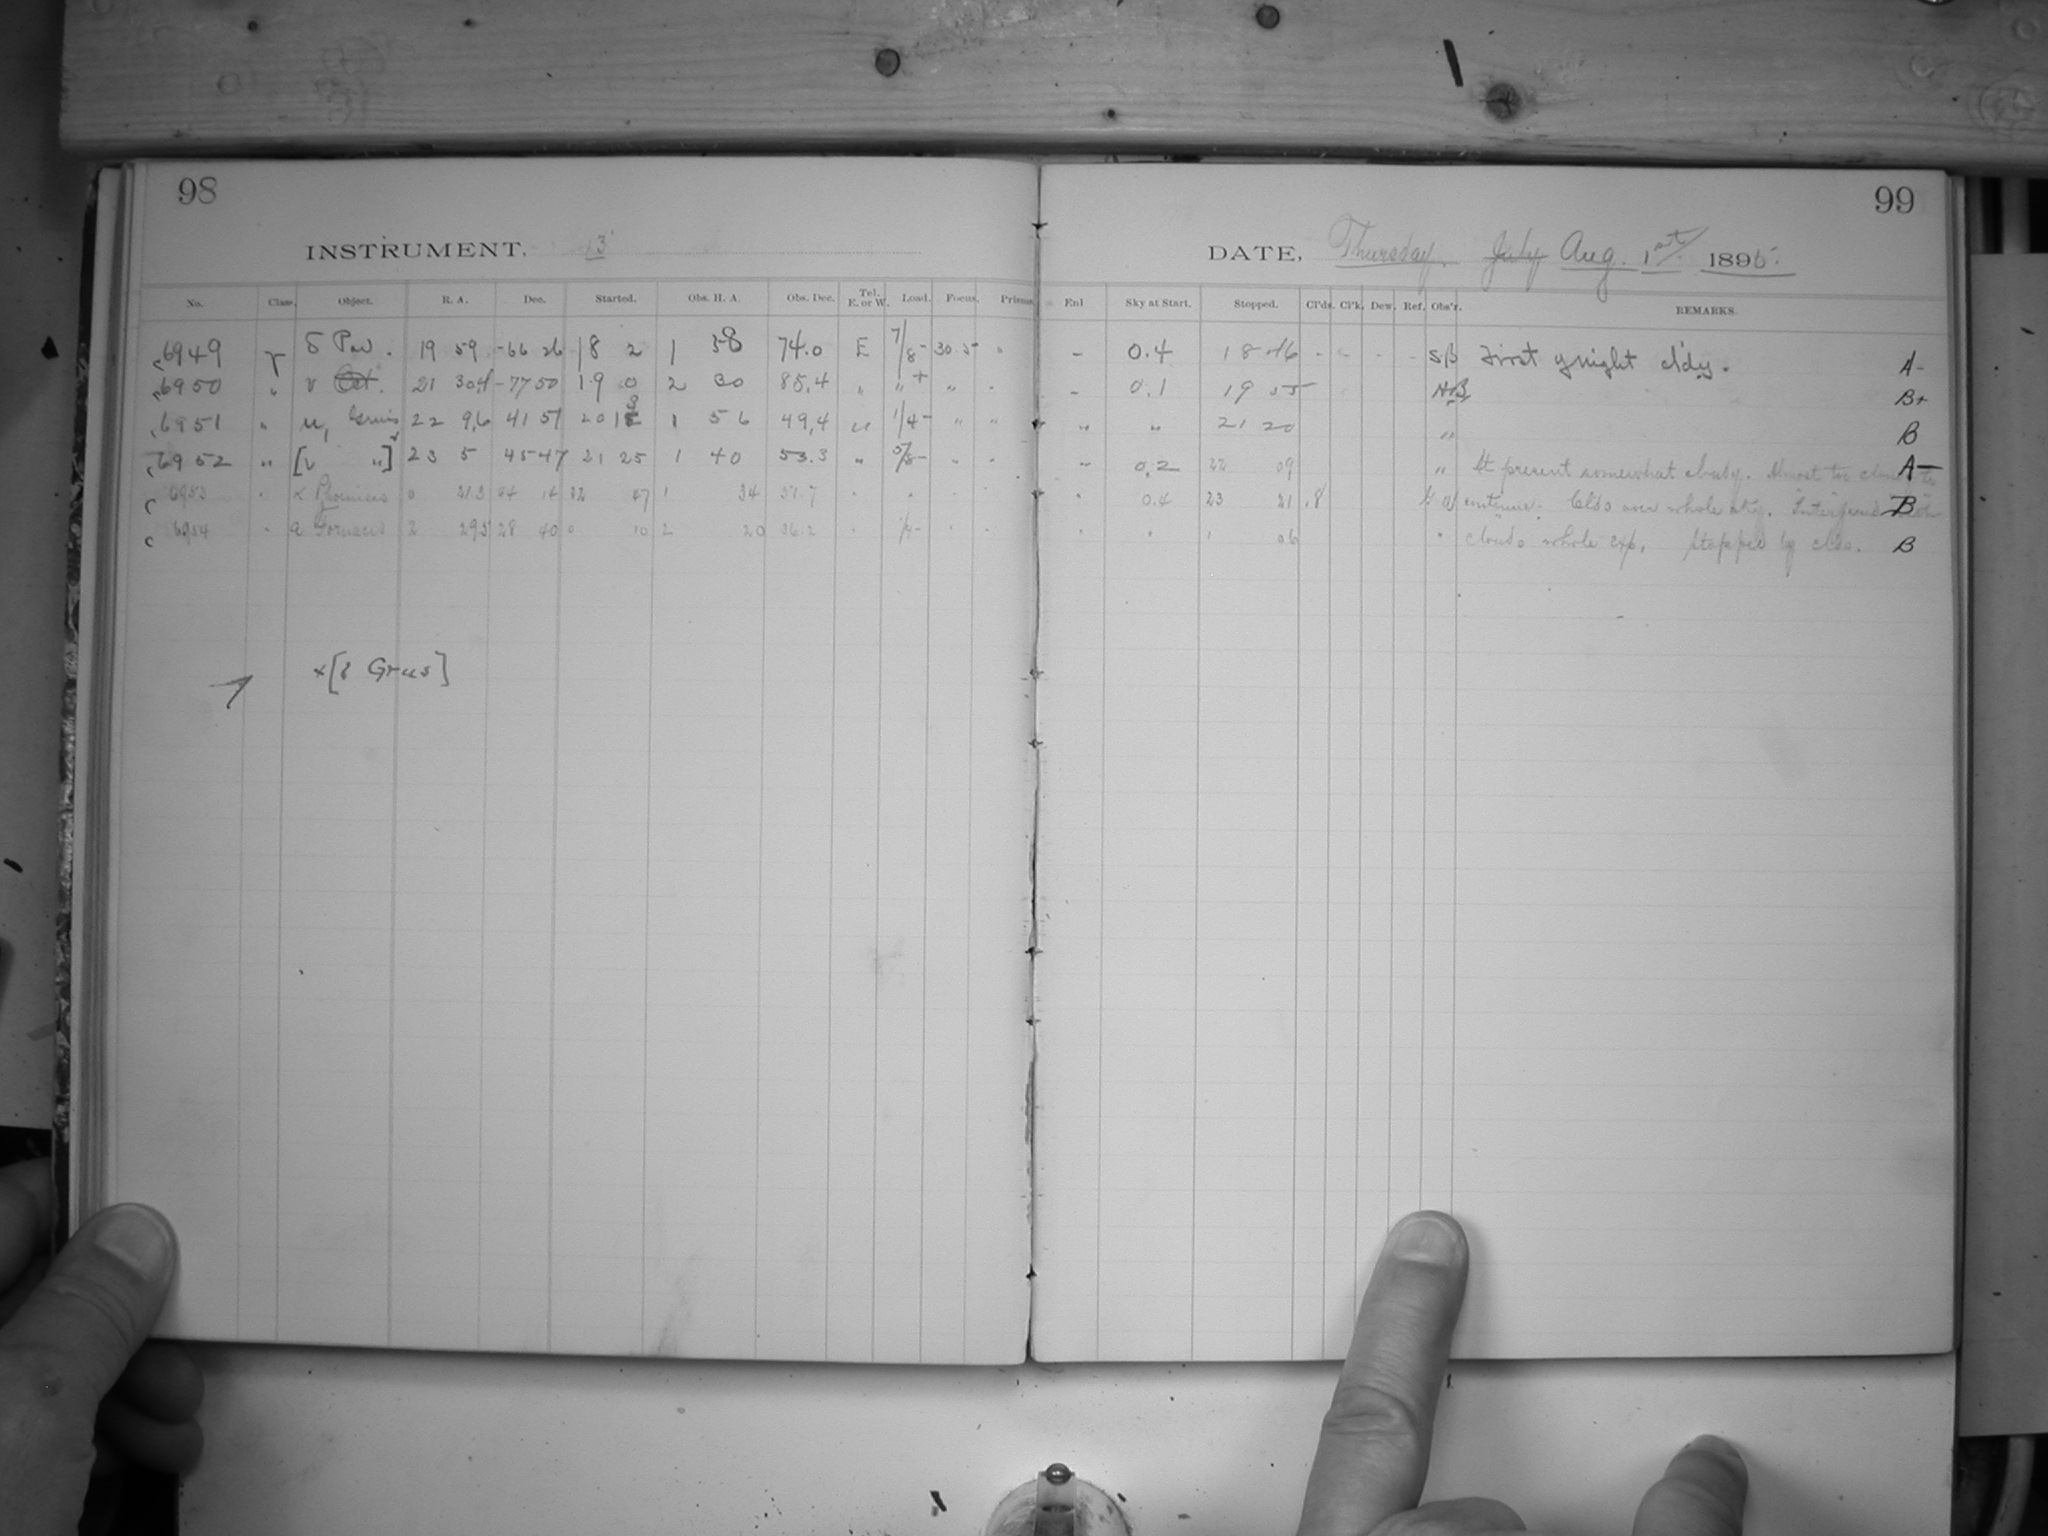 98
INSTRUMENT, 13
No. Class. Object. R. A. Dec. Started. Obs. H. A. Obs. Dec. Tel. E. or W. Load. Focus. Prisms
6949 γ δ Pav. 19 59 -66 26 18 2 1 58 74.0 E 7/8- 30.5 "
6950 " ν Oct. 21 30.4 -77 50 19 0 2 30 85.4 " " + " "
6951 " μ, Gruis 22 9.6 41 51 20 1 56 49.4 " 1/4- " "
6952 " [ν "] x 23 5 45 47 21 25 1 40 53.3 " 5/8- " "
6953 " α Phoenicis 0 21.3 22 47 1 34 51.7 " " " "
6954 " α Fornacis 2 29.5 28 40 0 10 2 20 36.2 " 1/4- " "
x [ Grus]
99
DATE, Thursday. July Aug. 1st/ 1895.
Enl Sky at Start. Stopped. Cl'ds. Cl'k. Dew. Ref. Obs'r. REMARKS.
- 0.4 18 46 - - - - SB First night cl'dy. A-
- 0.1 19 55 B+
" " 21 20 " B
" 0.2 22 09 " At present somewhat cloudy. Almost too cloudy to A-
" 0.4 23 21 .8 continue. Clds over whole sky. B
" " 1 06 " clouds whole exp. Stopped by clds. B